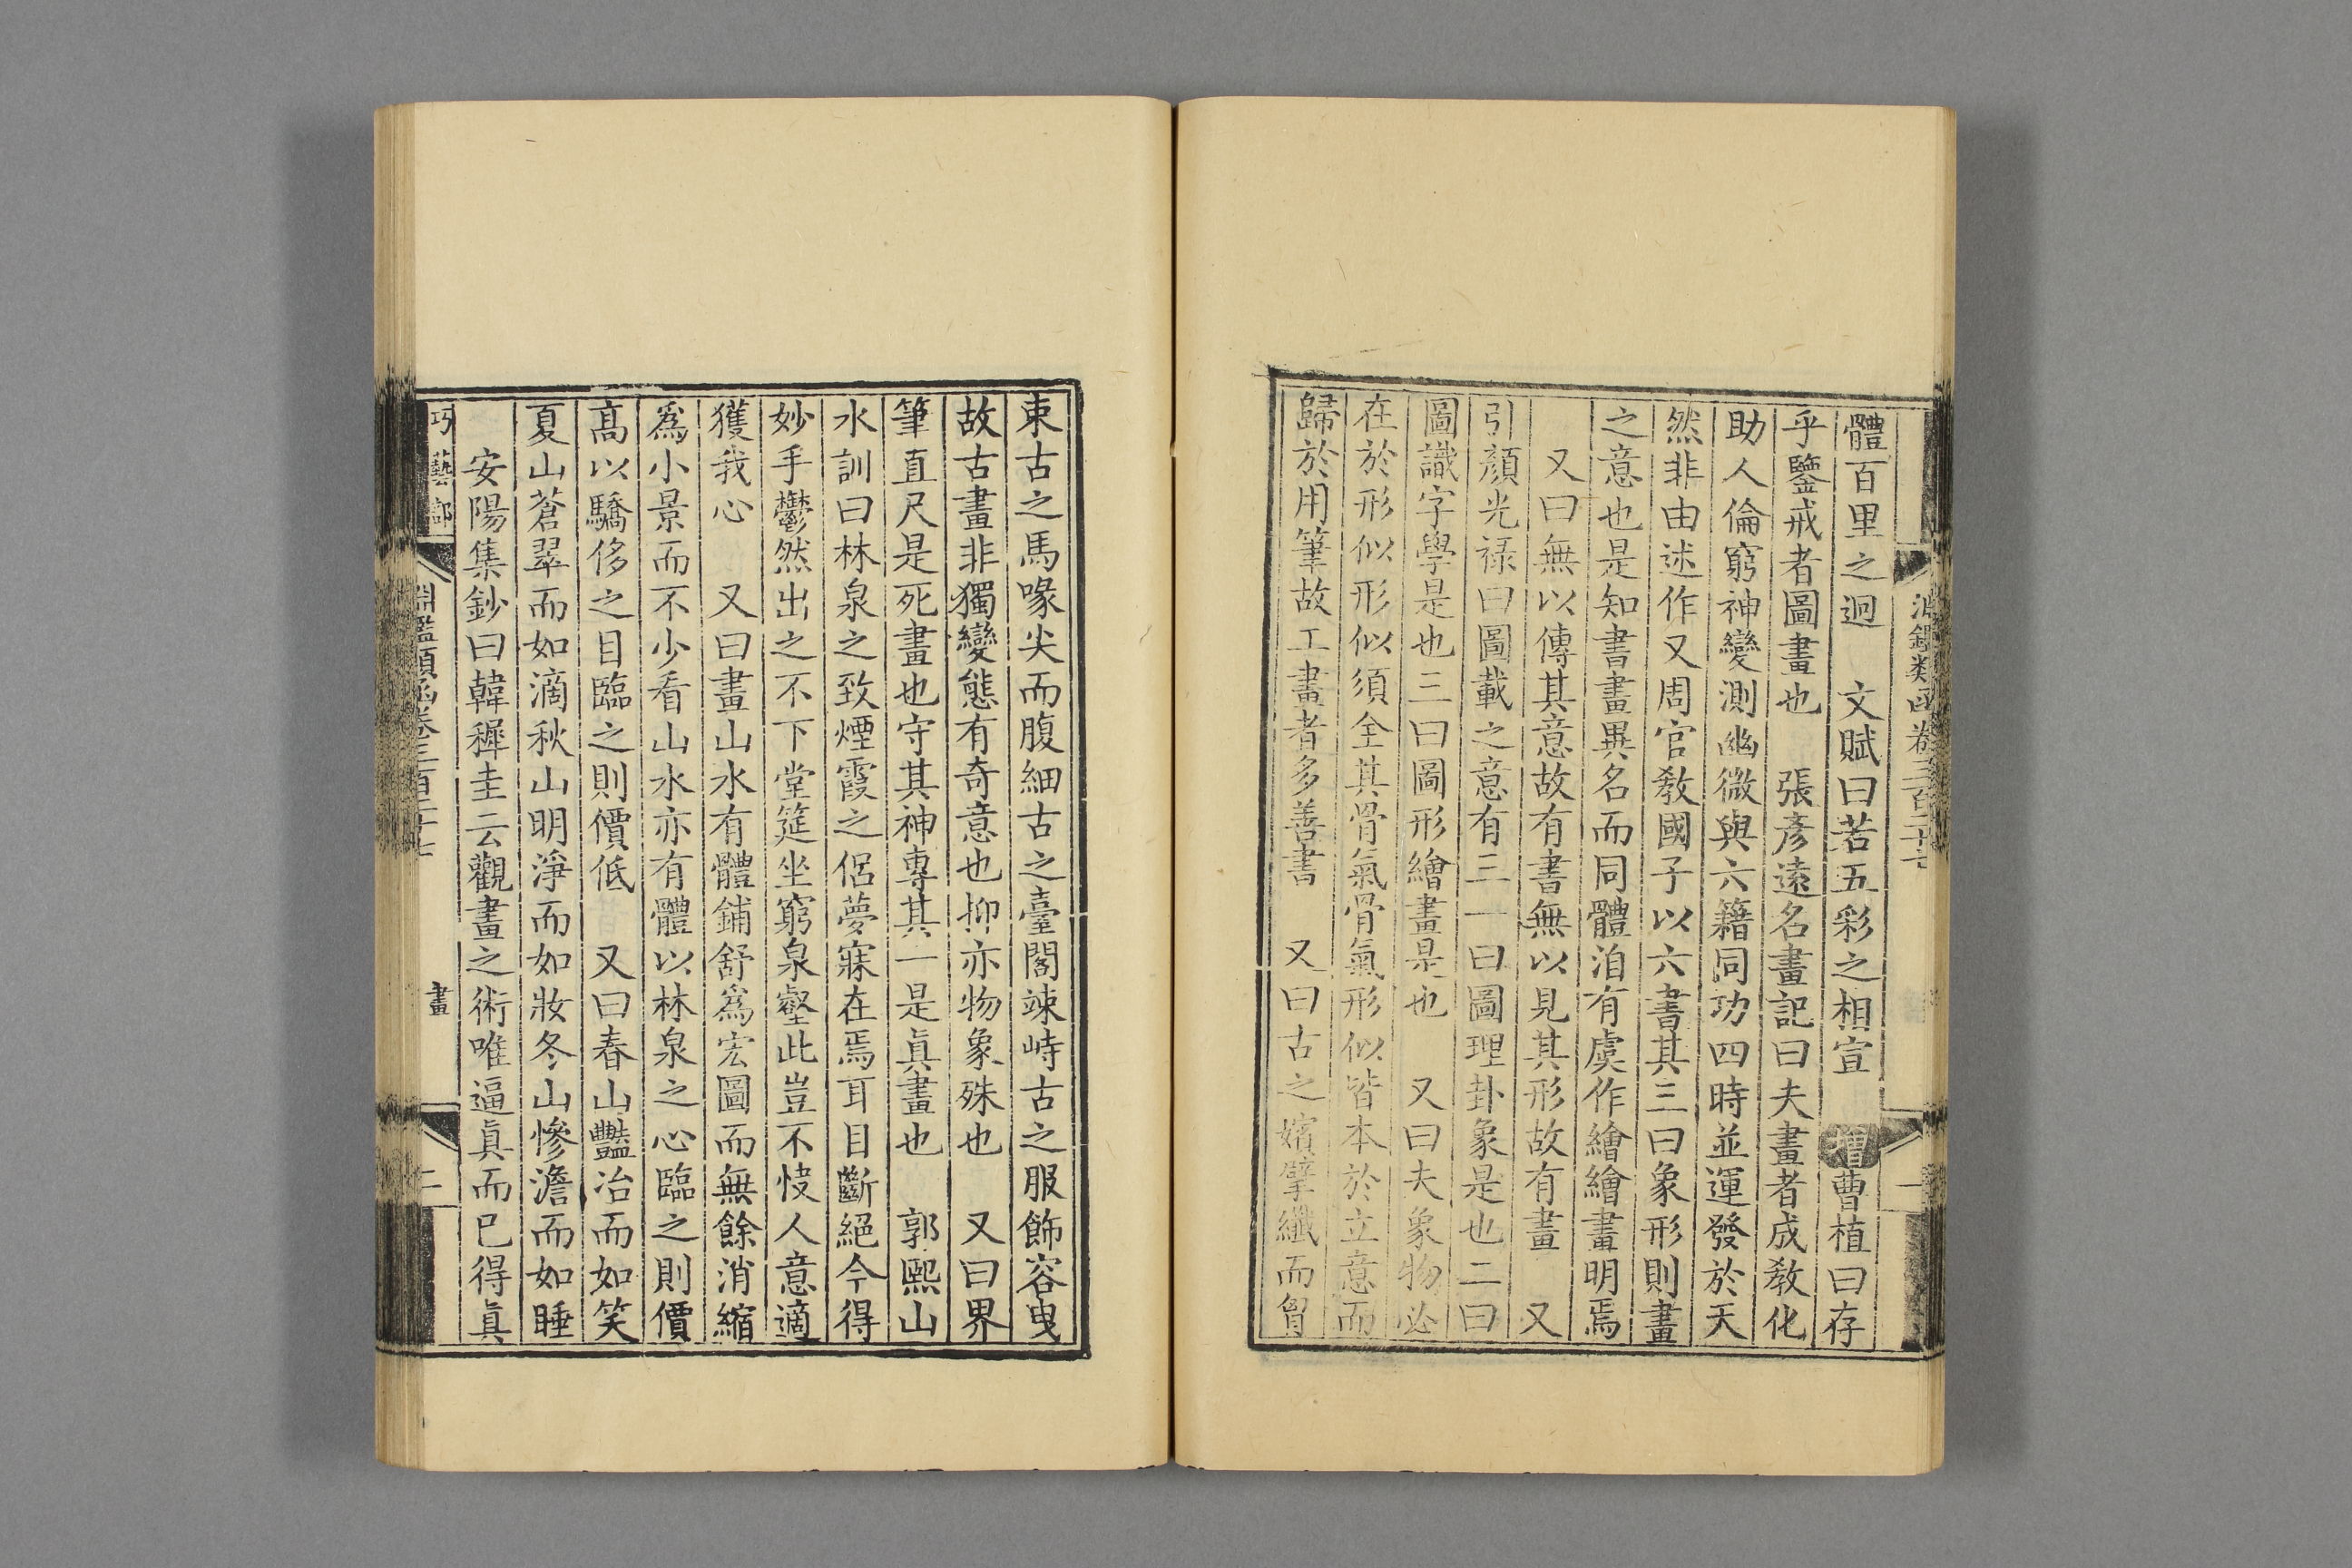 體百里之迥　文賦曰若五彩之相宣　增曹植曰存
乎鑒戒者圖畫也　張彥遠名畫記曰夫畫者成敎化
助人倫窮神變測幽微與六籍同功四時並運發於天
然非由述作又周官敎國子以六書其三曰象形則畫
之意也是知書畫異名而同體洎有虞作繪繪畫明焉
又曰無以傳其意故有書無以見其形故有畫　又
引顏光祿曰圖載之意有三一曰圖理卦象是也二曰
圖識字學是也三曰圖形繪畫是也　又曰夫象物必
在於形似形似須全其骨氣骨氣形似皆本於立意而
歸於用筆故工畫者多善書　又曰古之嬪擘纖而胷
束古之馬喙尖而腹細古之臺閣竦峙古之服飾容曳
故古畫非獨變態有奇意也抑亦物象殊也　又曰界
筆直尺是死畫也守其神專其一是眞畫也　郭熙山
水訓曰林泉之致煙霞之侶夢寐在焉耳目斷絕今得
妙手鬱然出之不下堂筵坐窮泉壑此豈不快人意適
獲我心　又曰畫山水有體鋪舒爲宏圖而無餘消縮
爲小景而不少看山水亦有體以林泉之心臨之則價
高以驕侈之目臨之則價低　又曰春山豔冶而如笑
夏山蒼翠而如滴秋山明淨而如妝冬山慘澹而如睡
安陽集鈔曰韓穉圭云觀畫之術唯逼眞而已得眞
巧藝部
淵鑑類函卷三百二十七
畫
二